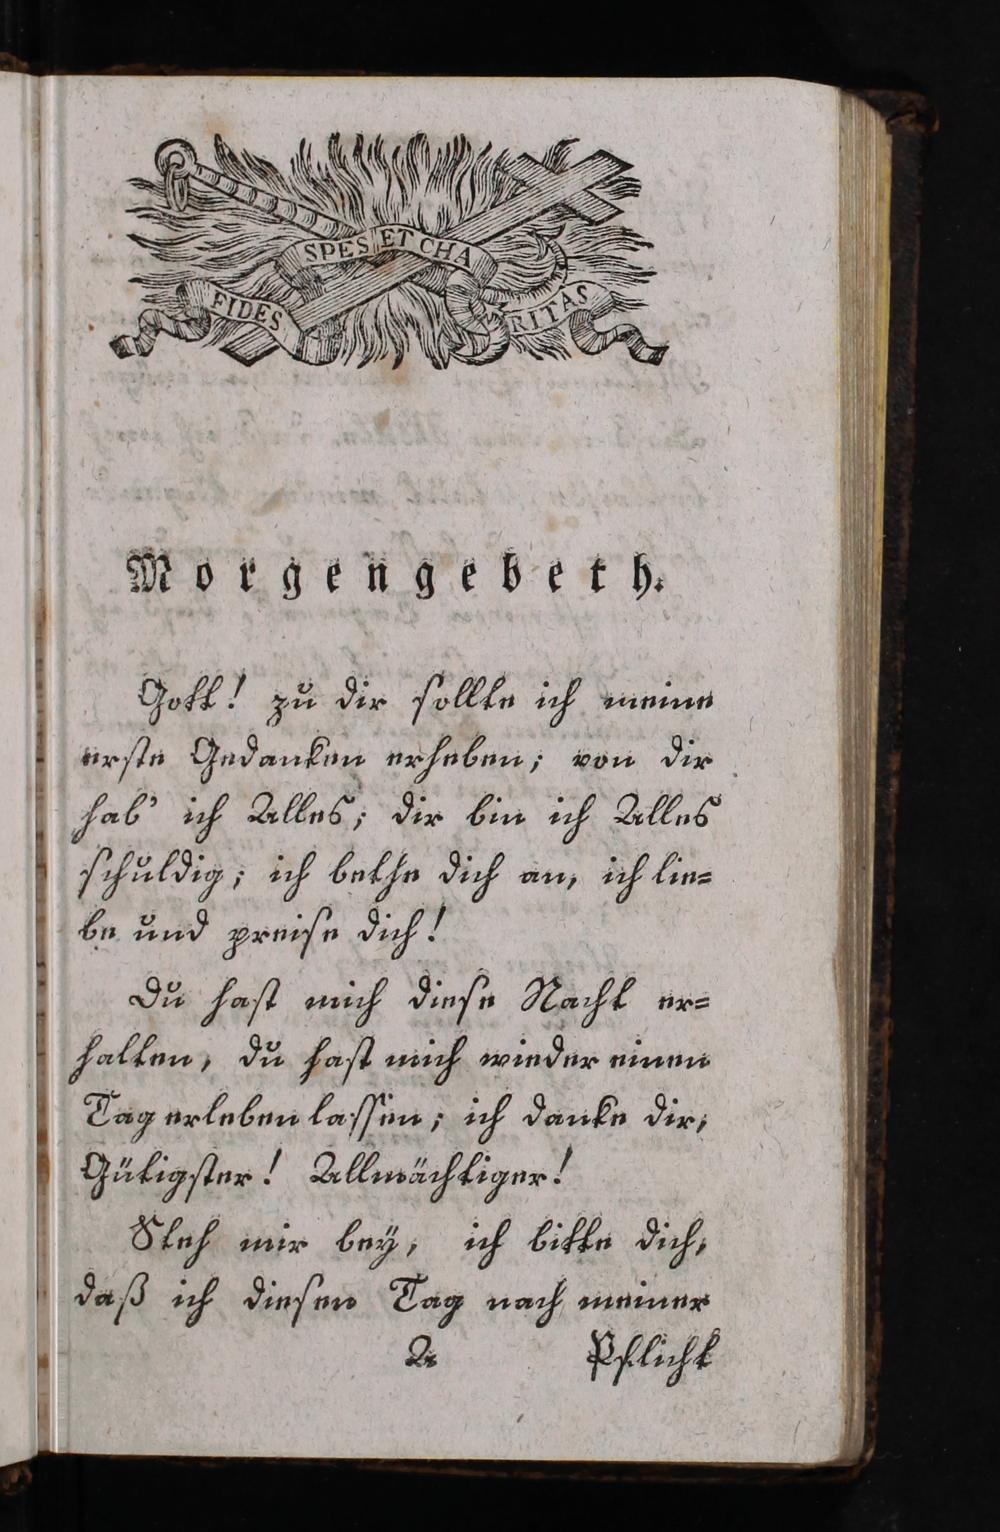 SPES ET CHA
FIDES RITAS
Morgengebeth.
Gott! zu dir sollte ich meine
erste Gedanken erheben; von dir
hab' ich Alles; dir bin ich Alles
schuldig; ich bethe dich an, ich lie=
be und preise dich!
Du hast mich diese Nacht er=
halten, du hast mich wieder einen
Tag erleben lassen; ich danke dir,
Gütigster! Allmächtiger!
Steh mir bey, ich bitte dich,
daß ich diesen Tag nach meiner
A Pflicht